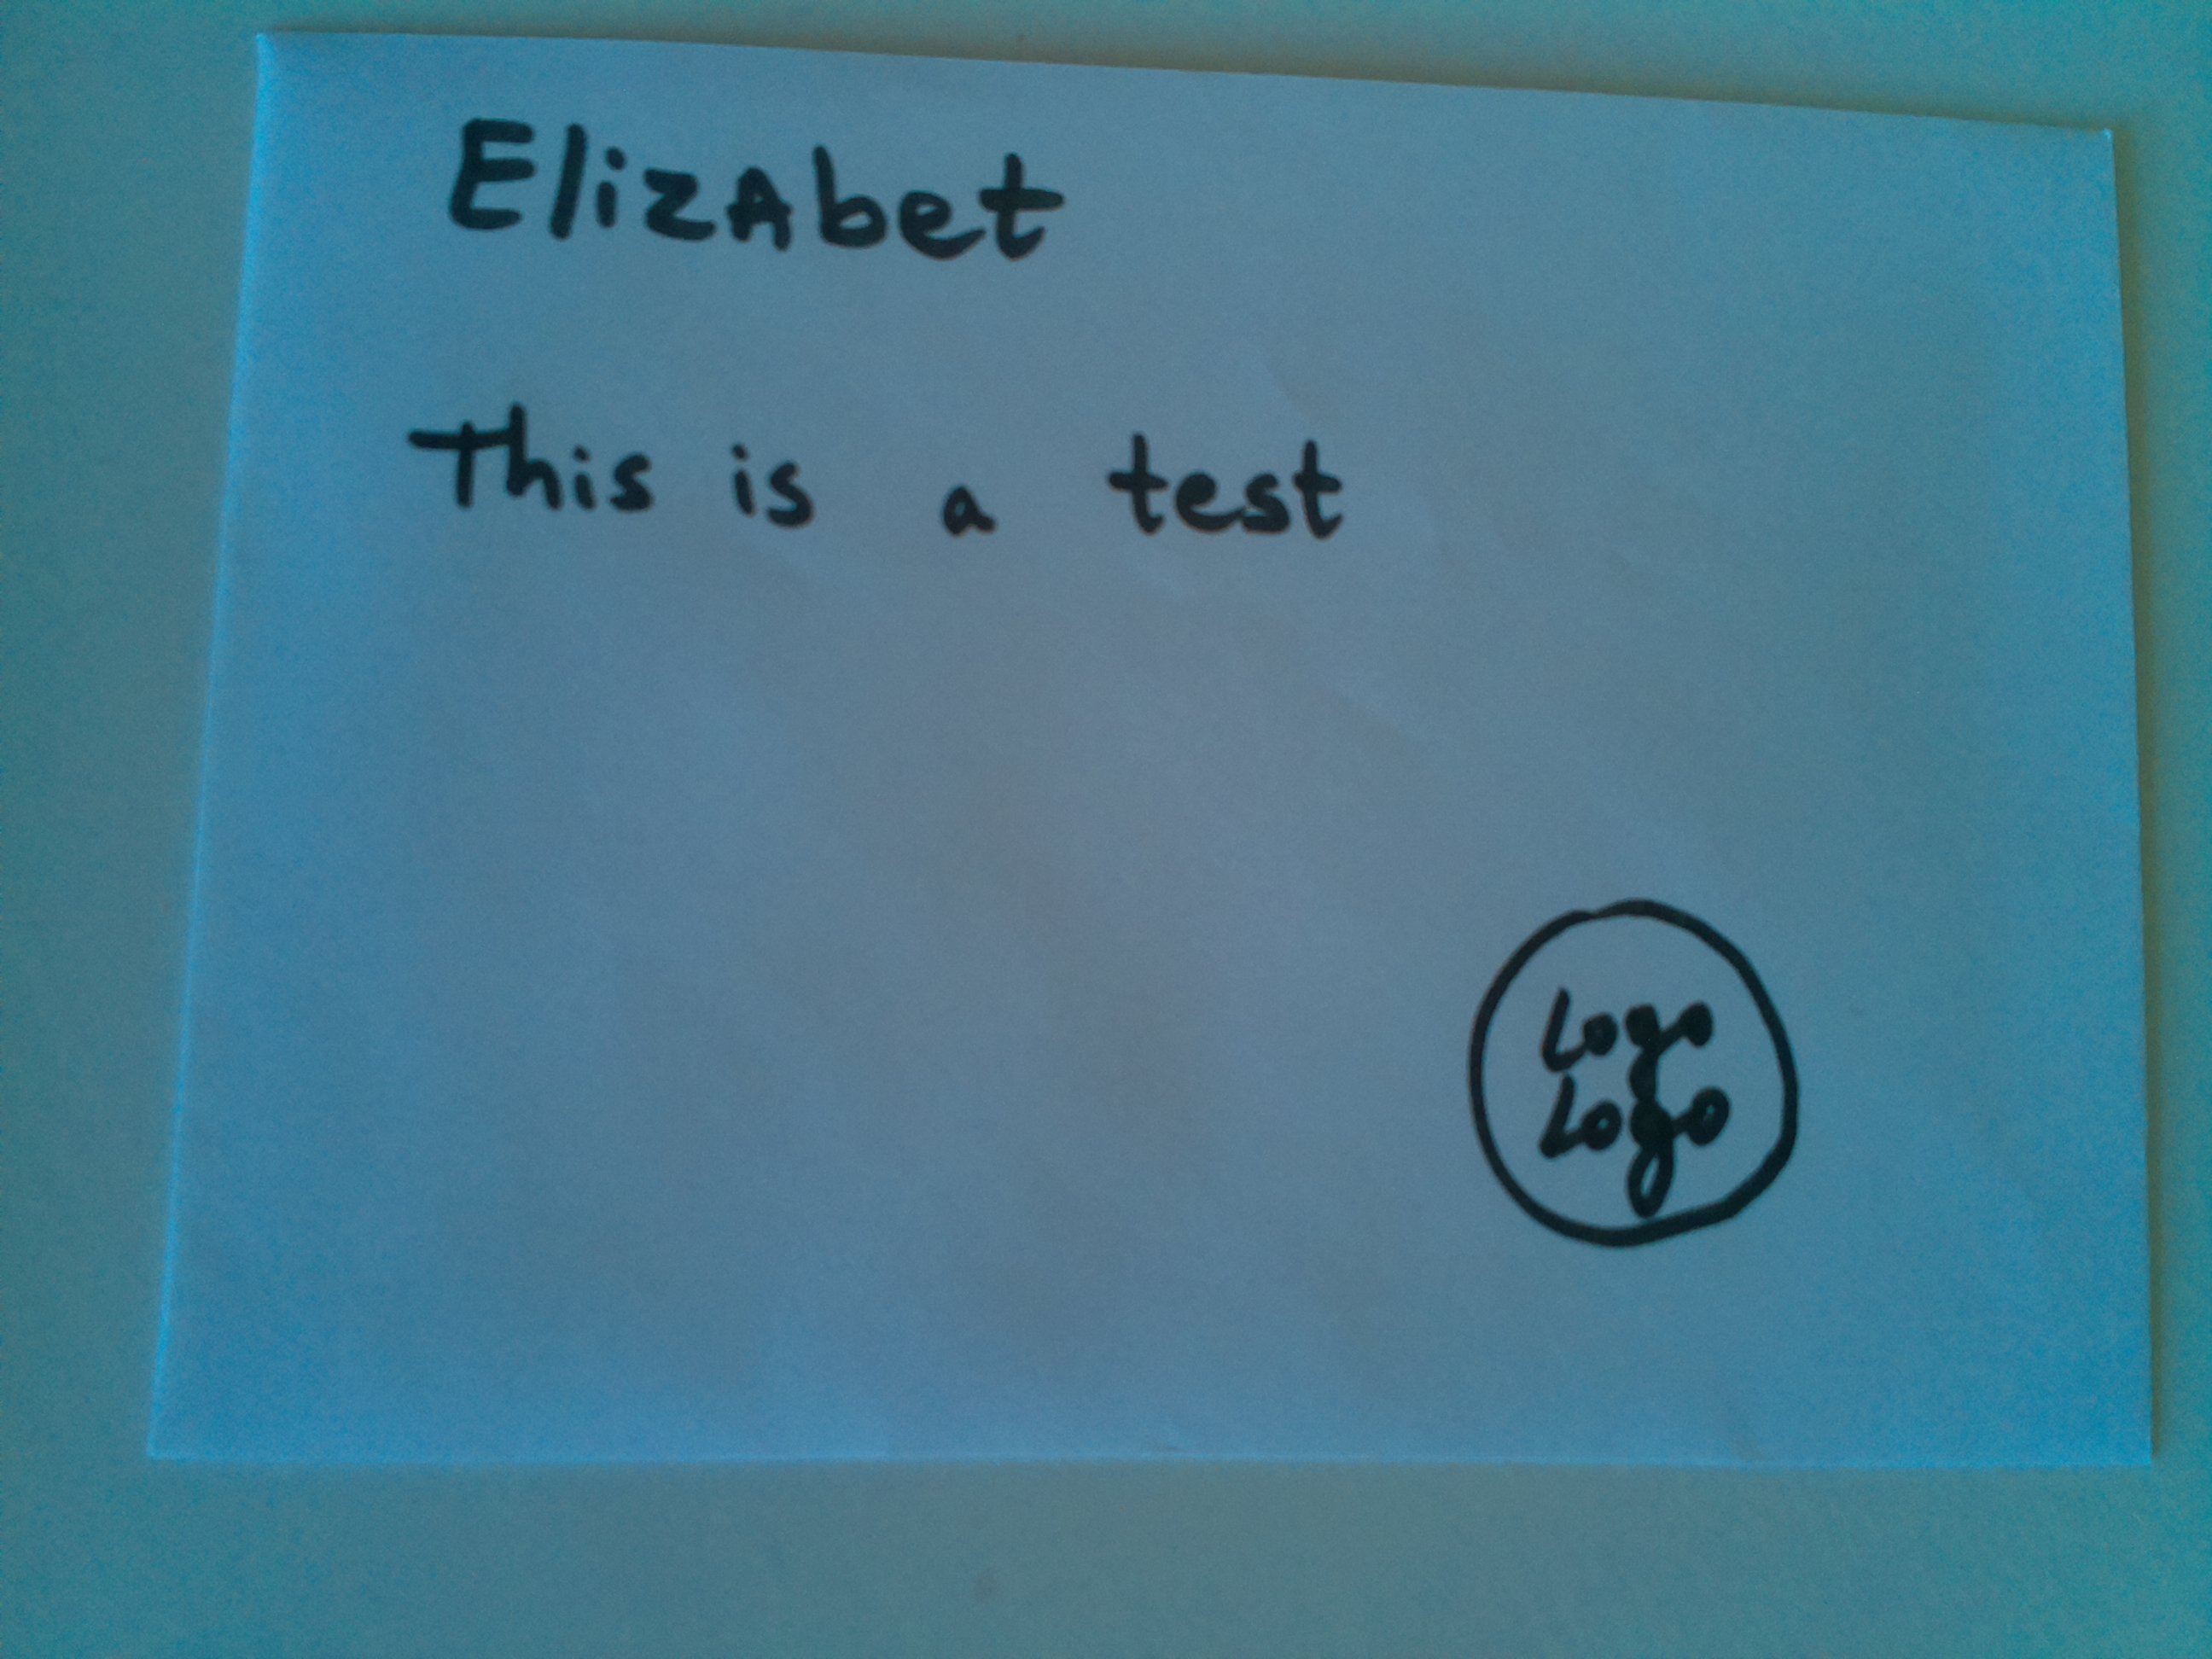 ElizAbet
This is a test
Logo
Logo